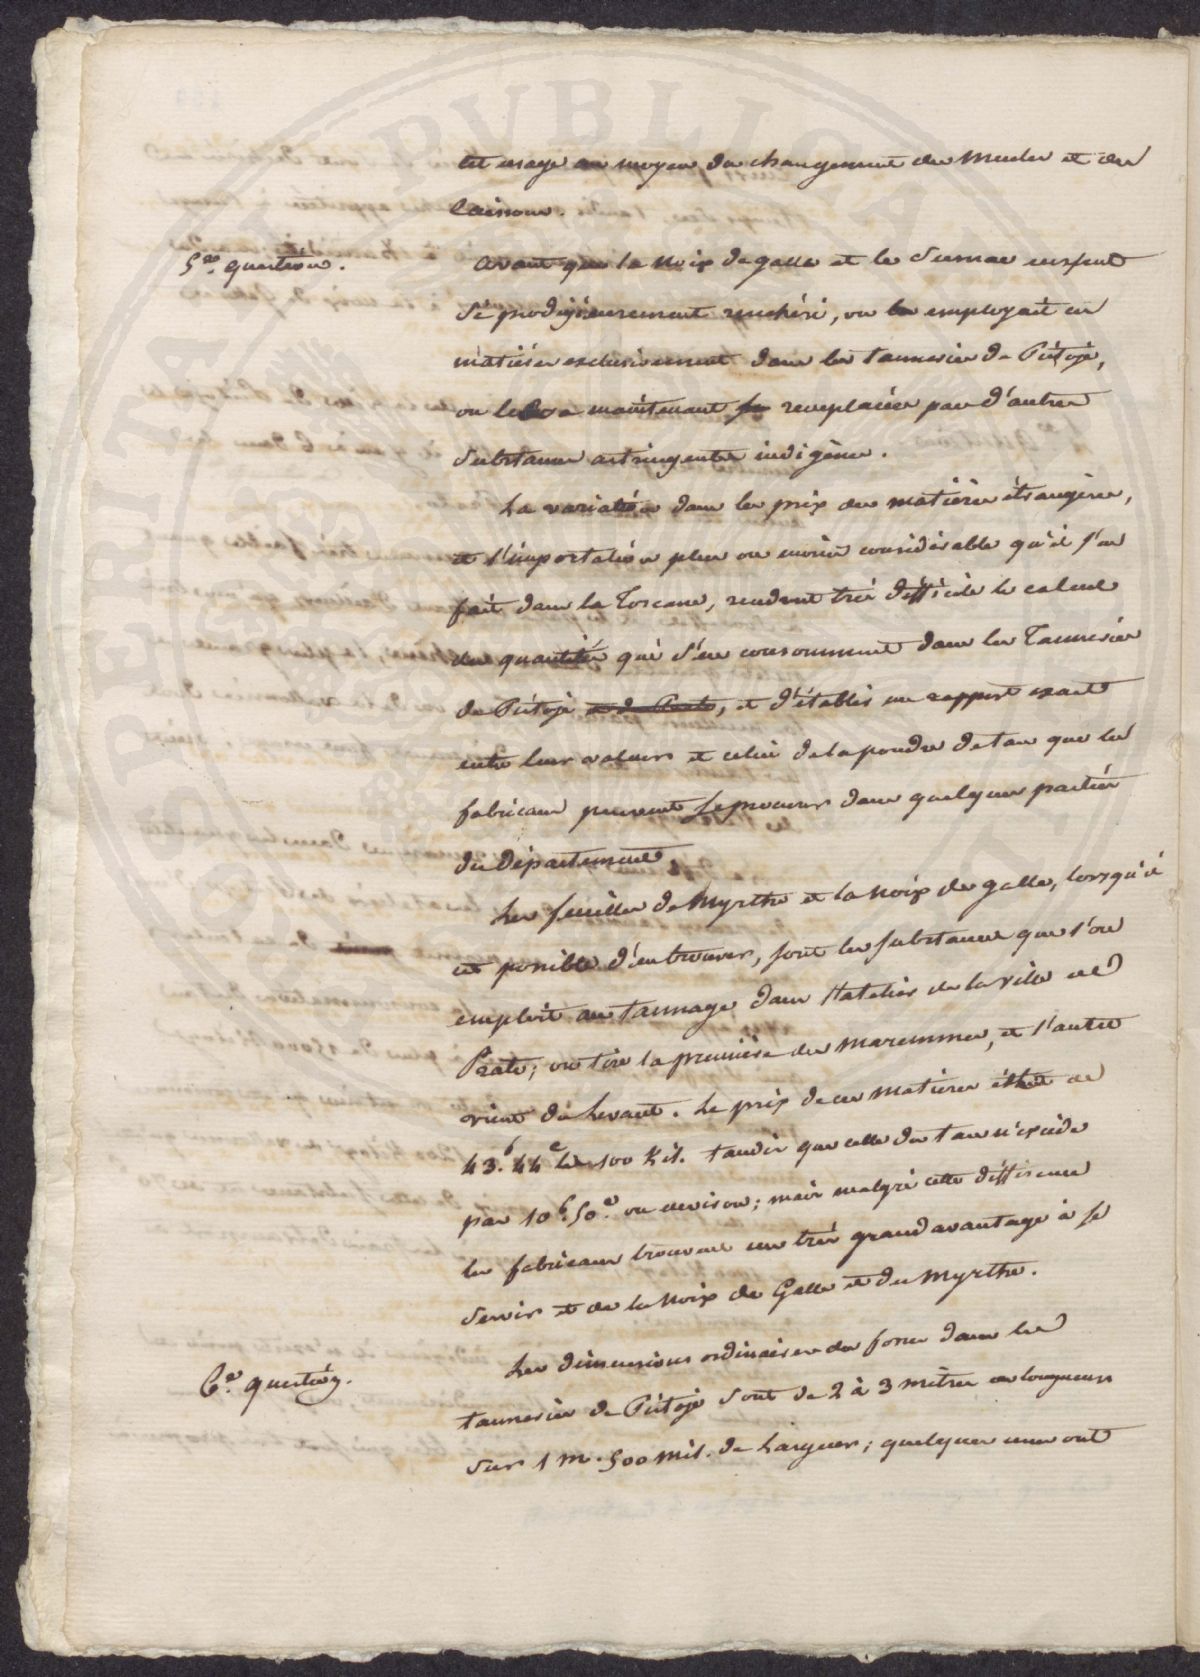 cet usage au moyen du changement des Meules et des
caissons.
5.e question.
avant que la Noix de galle et le Sumac eussent
si prodigieusement renchéri, on les employait ces
matières exclusivement dans les tanneries de Pistoje,
on les a maintenant remplacées par d'autres
Substances astringentes indigènes.
La variation dans les prix des matières étrangères,
et l'importation plus ou moins considérable qu'il s'en
fait dans la Toscane, rendent très difficile le calcul
des quantités qui s'en consomment dans les Tanneries
de Pistoje et de Prato, et d'établir un rapport exact
entre leurs valeurs et celui de la poudre de tan que les
fabricans peuvent se procurer dans quelques parties
du Département.
Les feuilles de Myrthe et la Noix de galle, lorsqu'il
est possible d'en trouver, sont les substances que l'on
emploit au tannage dans l'atelier de la Ville de
Prato; on tire la première des maremmes, et l'autre
vient du Levant. Le prix de ces matières est de
43.f 44.c les 100 Kil. tandis que celle du tan n'excède
pas 10.f 50.c ou environ; mais malgré cette différence
les fabricans trouvent un très grand avantage à se
servir et de la Noix de Galle et du Myrthe.
6.e question.
Les dimensions ordinaires des fosses dans les
tanneries de Pistoje sont de 2 à 3 mètres de longueur
sur 1 m. 500 mil. de largeur; quelques unes ont